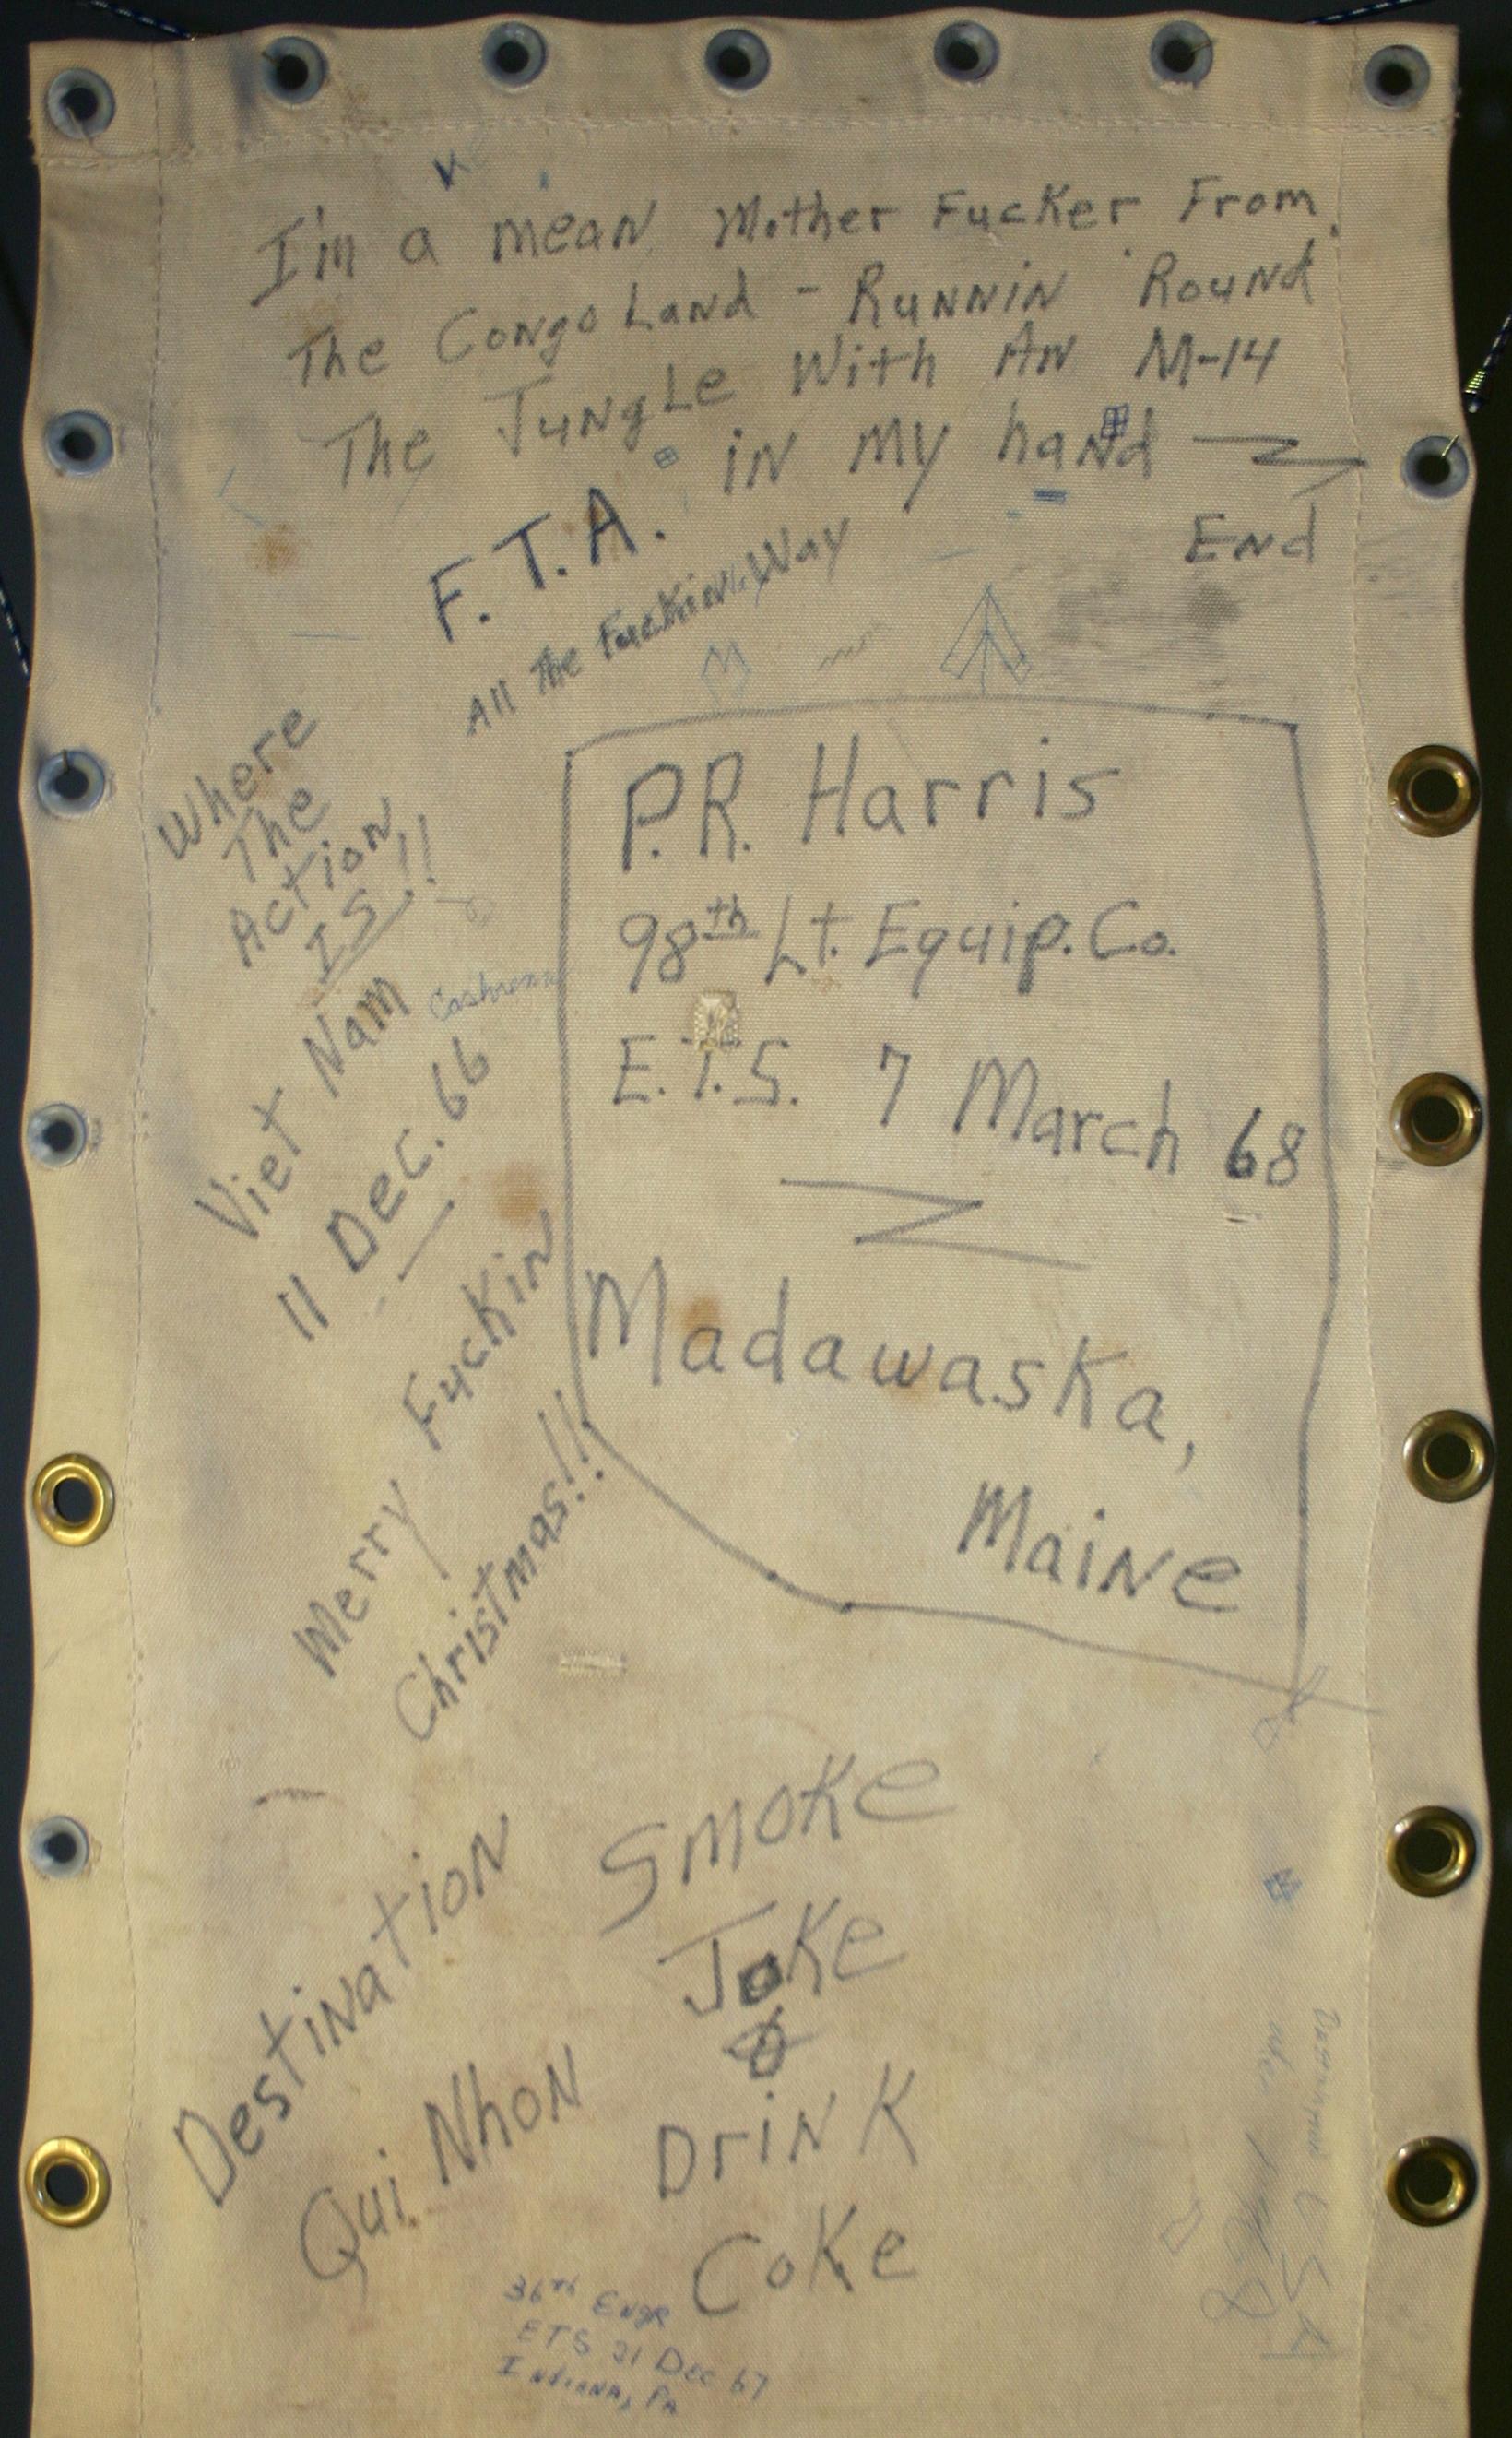 I'm a mean Mother Fucker From
The Congo Land - Runnin Round
The Jungle With An M-14
in my hand
End
F.T.A.
All The Fuckin Way
Where
The
Action
IS!!
Viet Nam
11 Dec. 66
P.R. Harris
98th Lt. Equip. Co.
E.T.S. 7 March 68
Madawaska,
Maine
Merry Fuckin
Christmas!!
Smoke
Joke
&
Drink
Coke
Destination
Qui Nhon
36th Engr
ETS 21 Dec 67
Indiana, PA
USA